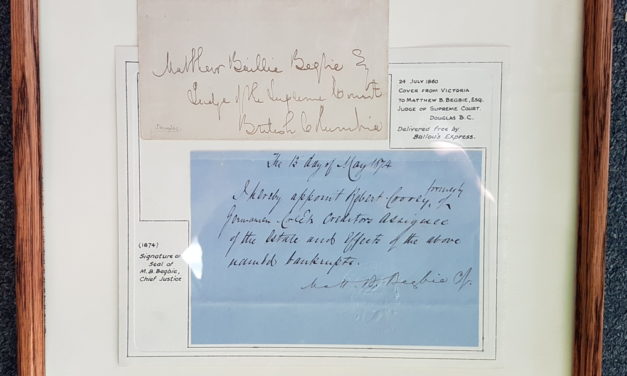 Matthew Baillie Begbie Esq
Judge of the Supreme Court
British Columbia
Douglas
24 JULY 1860
COVER FROM VICTORIA
TO MATTHEW B. BEGBIE, ESQ.
JUDGE OF SUPREME COURT.
DOUGLAS B.C.
Delivered free by
Ballou's Express.
The 13 day of May 1874
I hereby appoint Robert formerly of
Creditors Assignee
of the Estate and Effects of the above
named bankrupts.
Matt B. Begbie CJ.
(1874)
Signature or
Seal of
M.B. Begbie,
Chief Justice